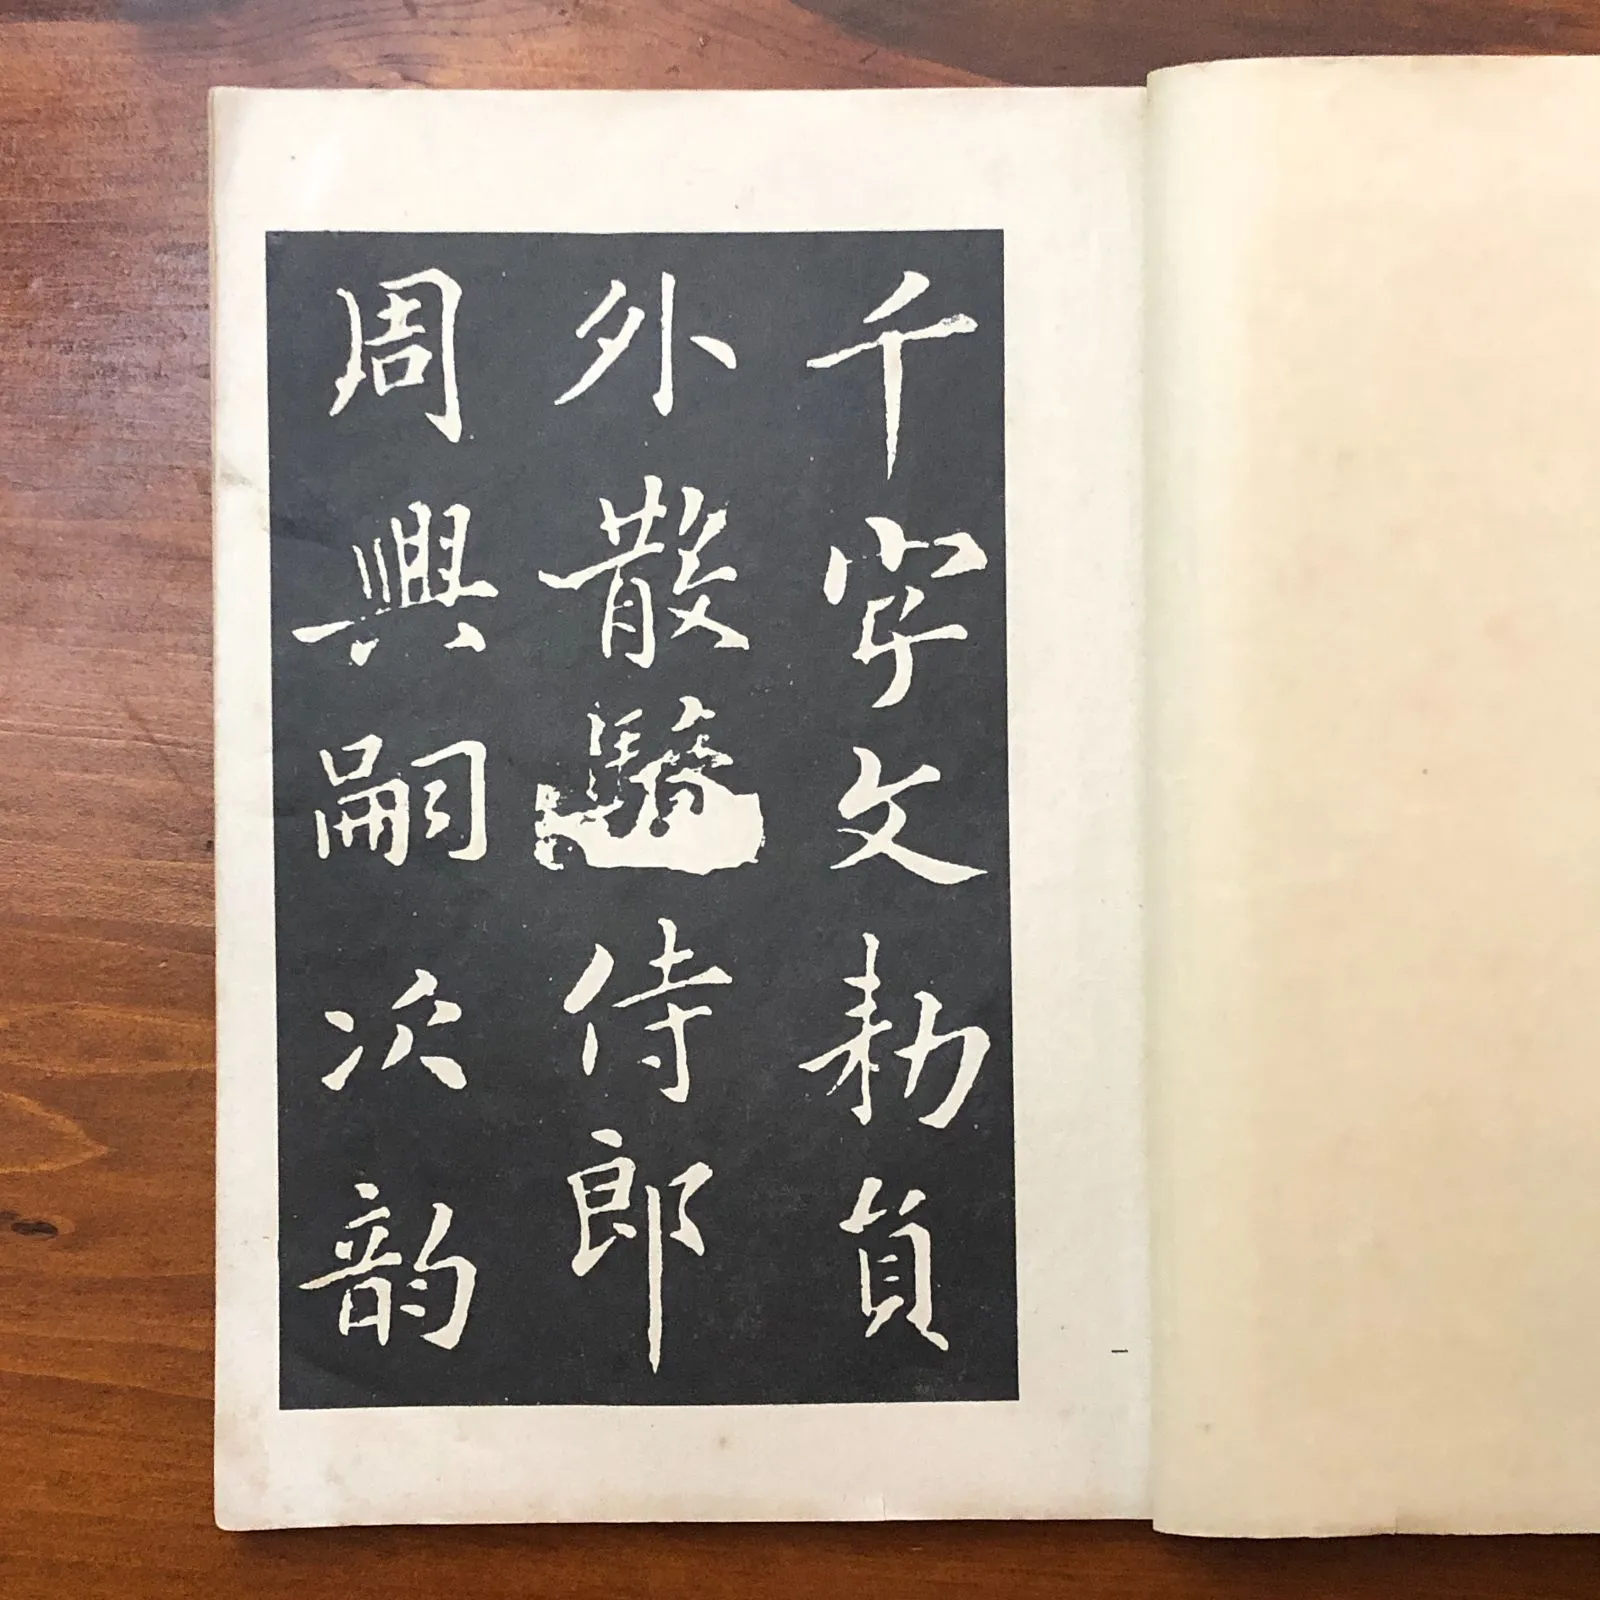 千字文勅員
外散騎侍郎
周興嗣次韵
一